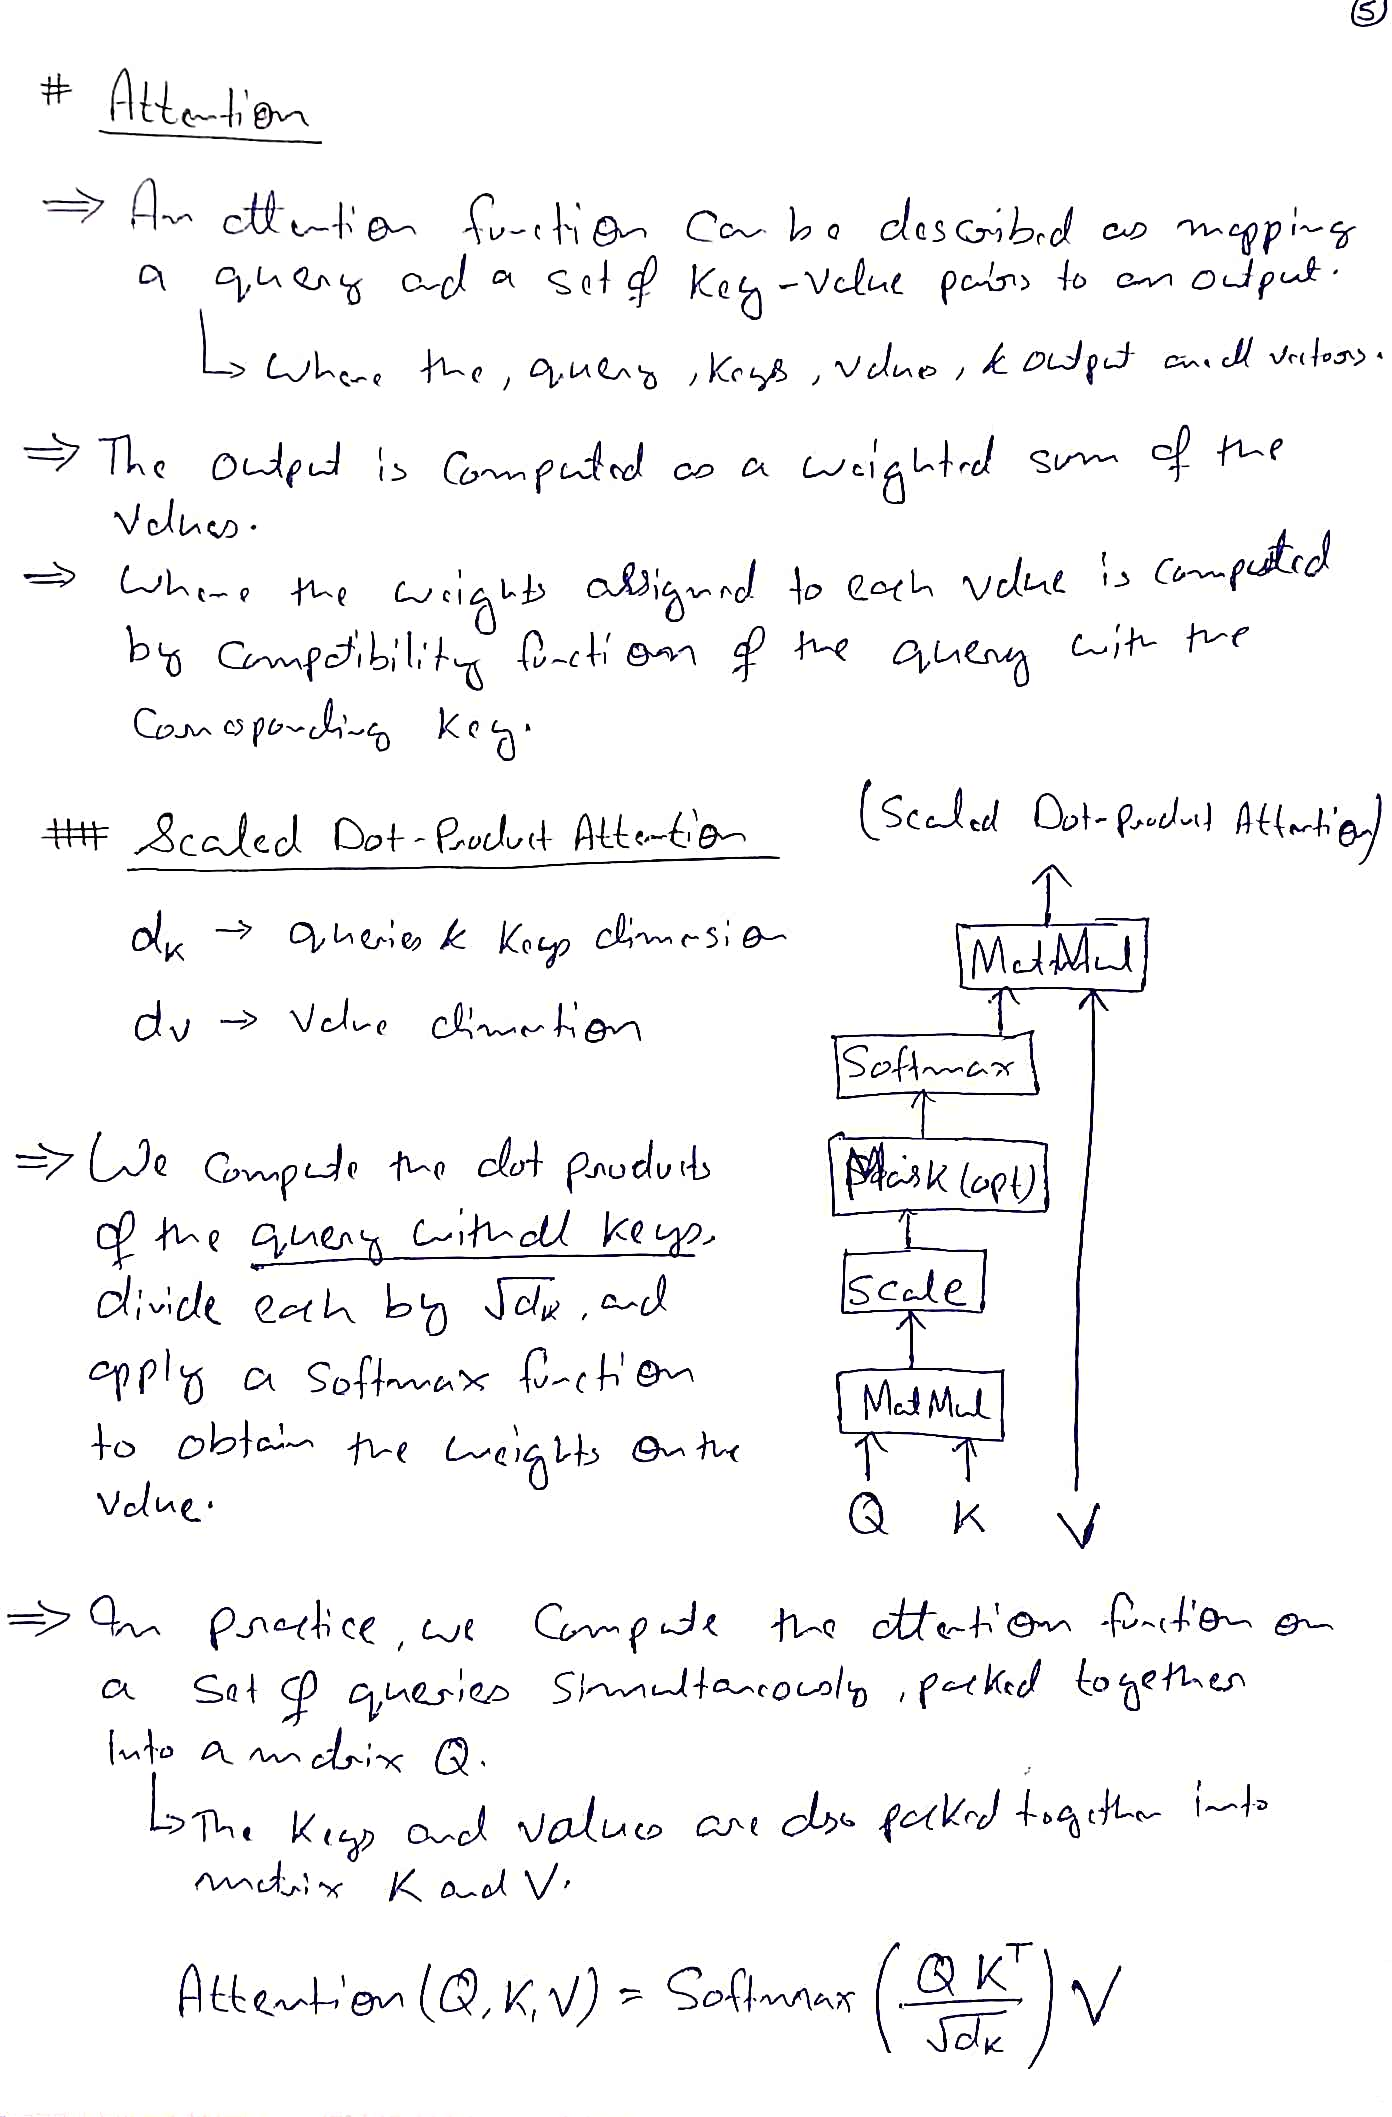 5
# Attention
⇒ An attention function can be described as mapping
a query and a set of key-value pairs to an output.
↳ Where the, query, keys, values, & output are all vectors.
⇒ The output is computed as a weighted sum of the
values.
⇒ Where the weights assigned to each value is computed
by compatibility function of the query with the
corresponding key.
## Scaled Dot-Product Attention
dk → queries & keys dimension
dv → value dimention
⇒ We compute the dot products
of the query with all keys,
divide each by √dk, and
apply a softmax function
to obtain the weights on the
value.
(Scaled Dot-Product Attention)
MatMul
Softmax
Mask (opt)
Scale
MatMul
Q K V
⇒ In practice, we compute the attention function on
a set of queries simultaneously, packed together
into a matrix Q.
↳ The keys and values are also packed together into
matrix K and V.
Attention(Q, K, V) = Softmax(QK^T / √dk) V